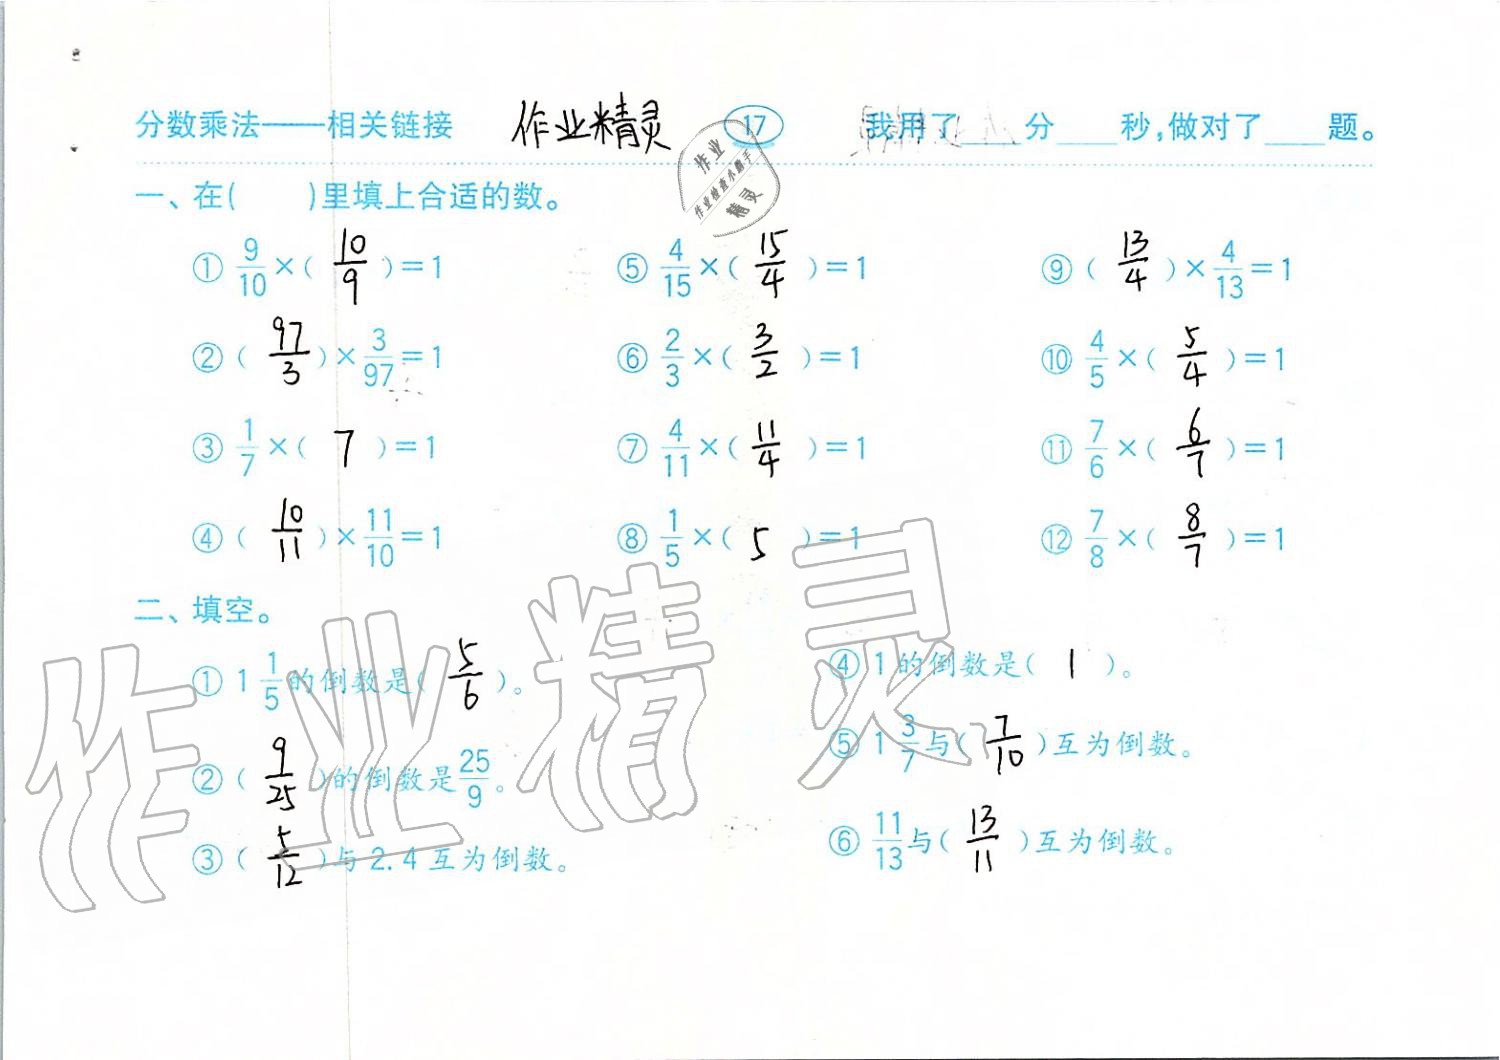 分数乘法——相关链接 作业精灵 17 我用了____分____秒,做对了____题。
作业
作业检查小助手
精灵
一、在(  )里填上合适的数。
① 9/10×( 10/9 )=1 ⑤ 4/15×( 15/4 )=1 ⑨ ( 13/4 )×4/13=1
② ( 97/3 )×3/97=1 ⑥ 2/3×( 3/2 )=1 ⑩ 4/5×( 5/4 )=1
③ 1/7×( 7 )=1 ⑦ 4/11×( 11/4 )=1 ⑪ 7/6×( 6/7 )=1
④ ( 10/11 )×11/10=1 ⑧ 1/5×( 5 )=1 ⑫ 7/8×( 8/7 )=1
二、填空。
① 1 1/5的倒数是( 5/6 )。 ④ 1的倒数是( 1 )。
② ( 9/25 )的倒数是25/9。 ⑤ 1 3/7与( 7/10 )互为倒数。
③ ( 5/12 )与2.4互为倒数。 ⑥ 11/13与( 13/11 )互为倒数。
作业精灵